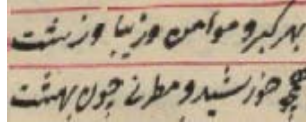 بهر کبر و مومن و زیبا و زشت
همچو خورشید و مطر نی چون بهشت